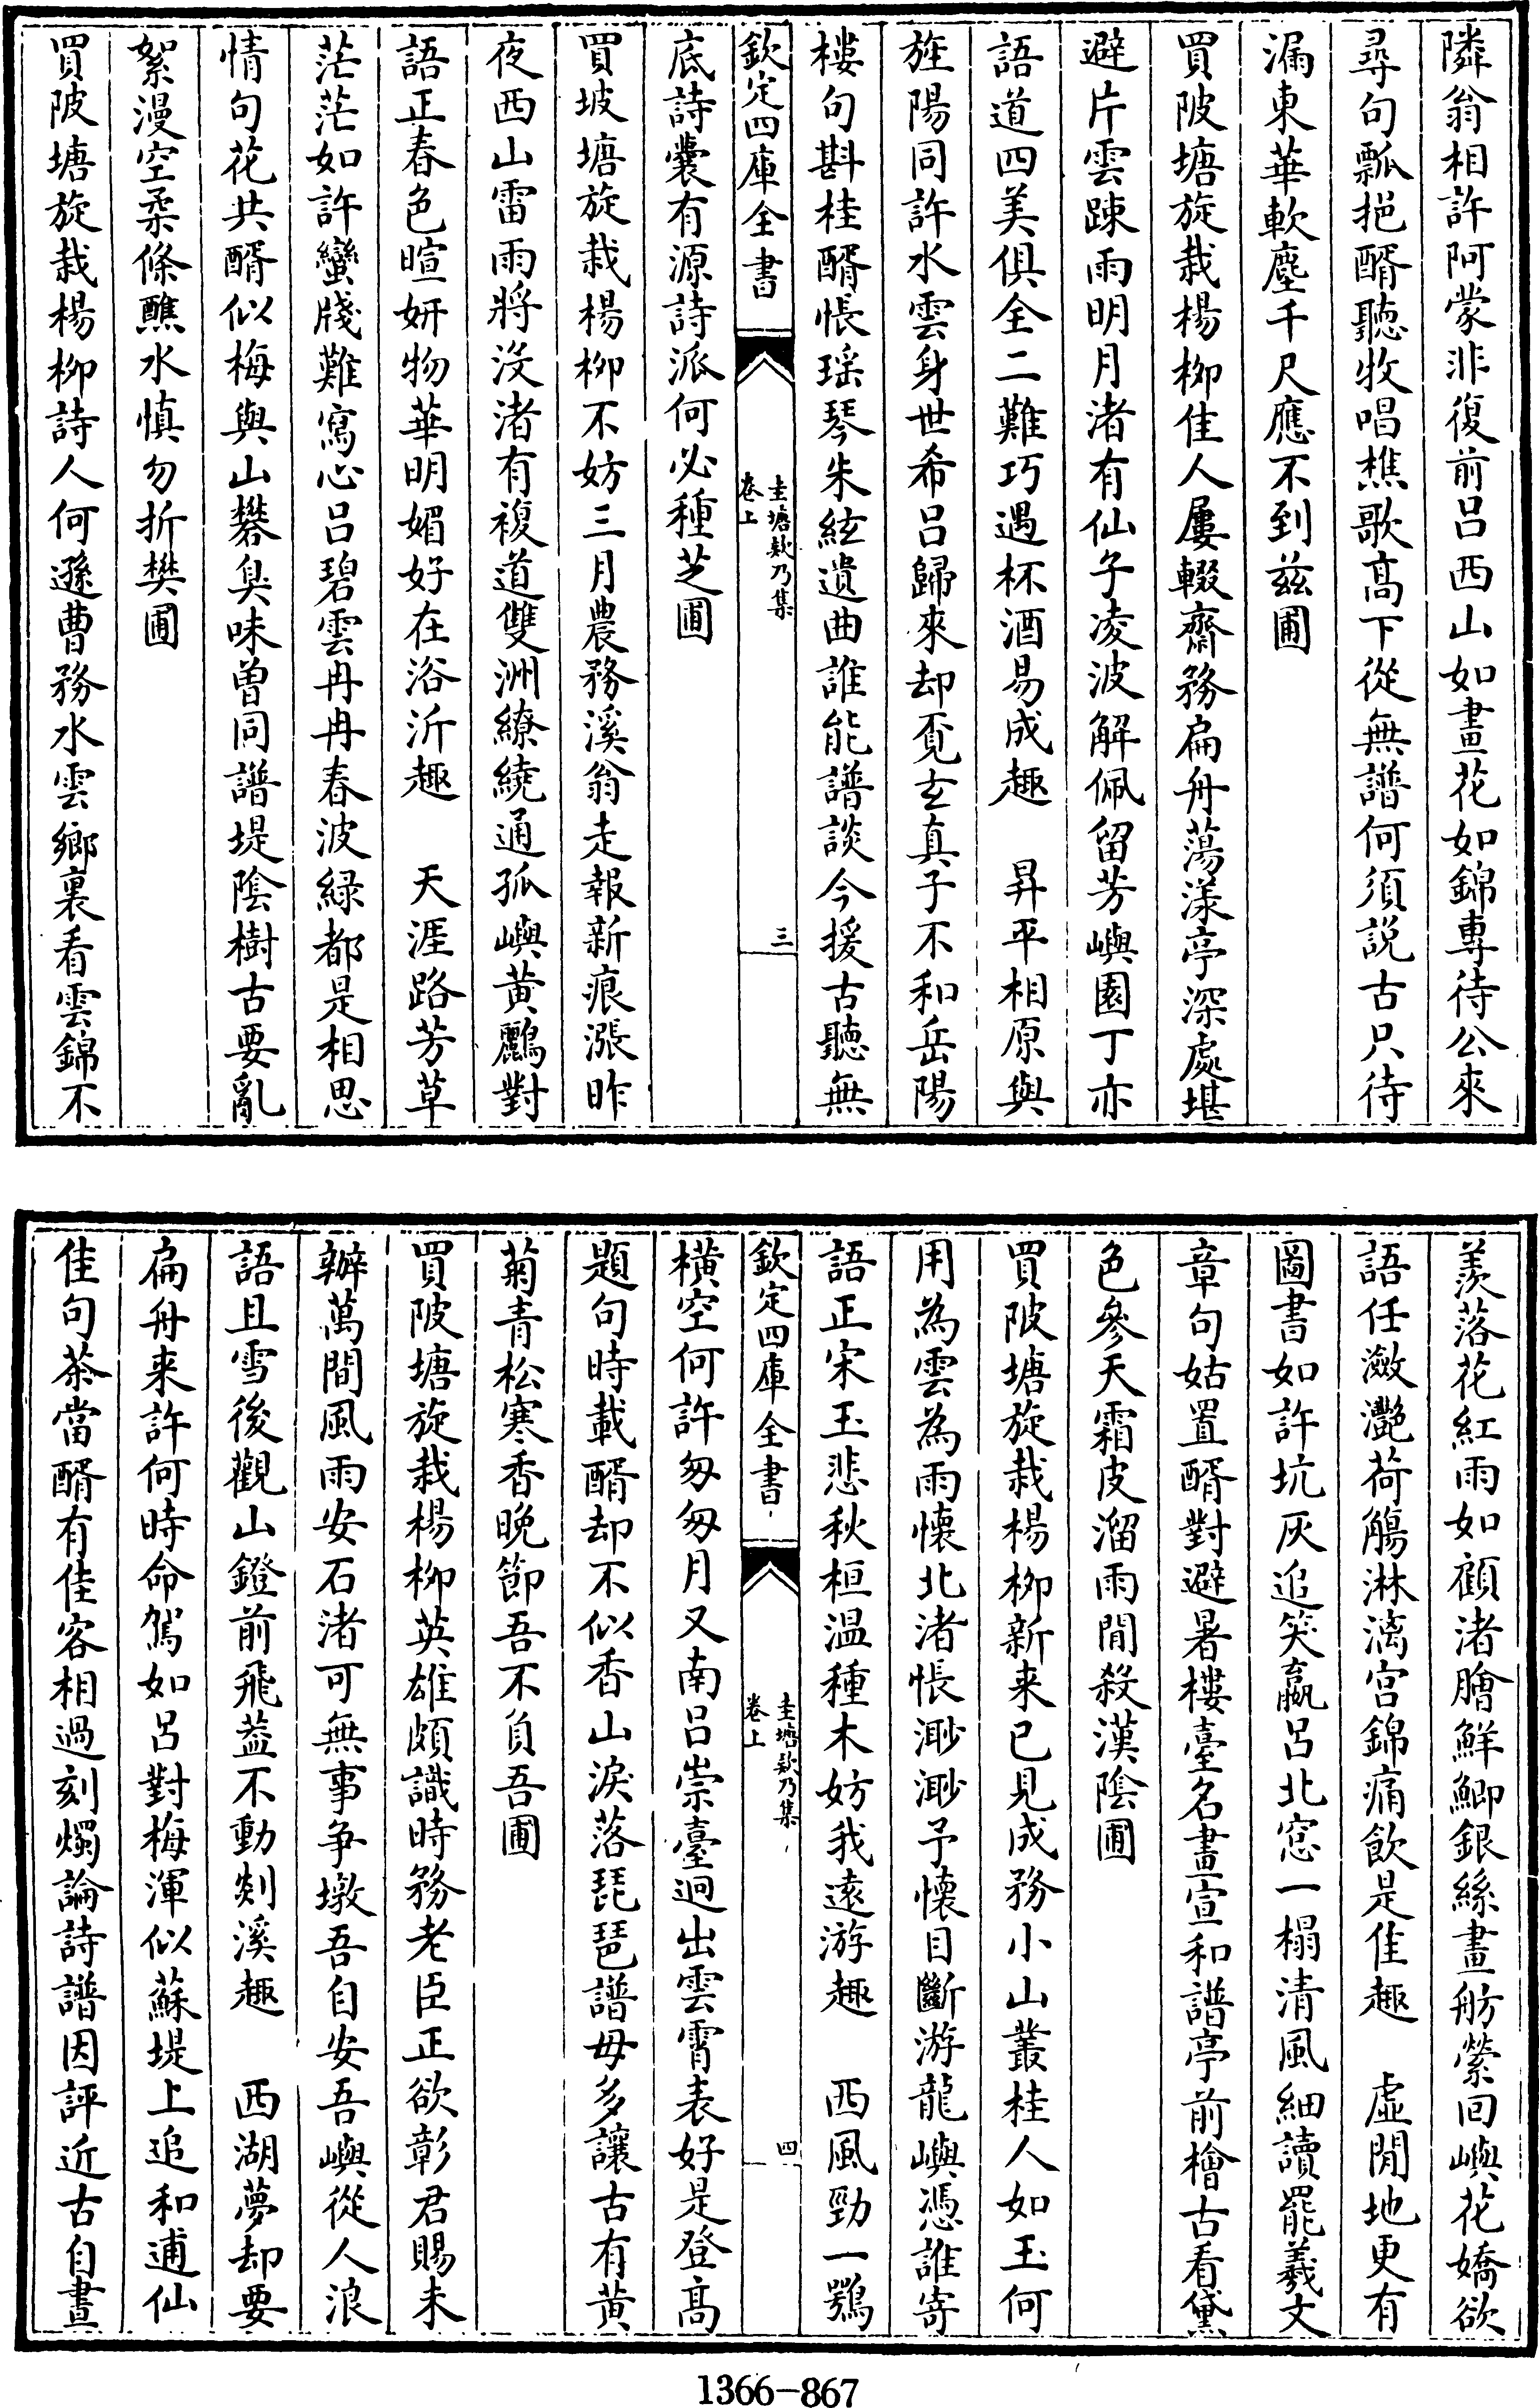 隣翁相許阿蒙非復前吕西山如畫花如錦專待公來
尋句瓢挹醑聽牧唱樵歌髙下從無譜何須説古只待
漏東華軟塵千尺應不到兹圃
買陂塘旋栽楊栁佳人屢輟齋務扁舟蕩漾亭深處堪
避片雲踈雨明月渚有仙子凌波解佩留芳嶼園丁亦
語道四美俱全二難巧遇杯酒易成趣　昇平相原與
旌陽同許水雲身世希吕歸來却覓玄真子不和岳陽
樓句斟桂醑悵瑶琴朱絃遺曲誰能譜談今援古聽無
欽定四庫全書　圭塘欸乃集　卷上　三
底詩囊有源詩派何必種芝圃
買坡塘旋栽楊栁不妨三月農務溪翁走報新痕漲昨
夜西山雷雨將没渚有複道雙洲繚繞通孤嶼黄鸝對
語正春色暄妍物華明媚好在浴沂趣　天涯路芳草
茫茫如許蠻牋難寫心吕碧雲冉冉春波緑都是相思
情句花共醑似梅與山礬臭味曽同譜堤陰樹古要亂
絮漫空柔條蘸水慎勿折樊圃
買陂塘旋栽楊栁詩人何遜曹務水雲鄉裏看雲錦不
羨落花紅雨如顧渚膾鮮鯽銀絲畫舫縈回嶼花嬌欲
語任瀲灧荷觴淋漓宫錦痛飲是佳趣　虚閒地更有
圖書如許坑灰追笑嬴吕北窓一榻清風細讀罷羲文
章句姑置醑對避暑樓臺名畫宣和譜亭前檜古看黛
色參天霜皮溜雨閒殺漢陰圃
買陂塘旋栽楊栁新来已見成務小山叢桂人如玉何
用為雲為雨懷北渚悵渺渺予懐目斷游龍嶼憑誰寄
語正宋玉悲秋桓温種木妨我逺游趣　西風勁一鶚
欽定四庫全書　圭塘欸乃集　卷上　四
横空何許匆匆月又南吕崇臺迥出雲霄表好是登髙
題句時載醑却不似香山淚落琵琶譜毋多讓古有黄
菊青松寒香晚節吾不負吾圃
買陂塘旋栽楊栁英雄頗識時務老臣正欲彰君賜未
辦萬間風雨安石渚可無事争墩吾自安吾嶼從人浪
語且雪後觀山鐙前飛葢不動剡溪趣　西湖夢却要
扁舟来許何時命駕如吕對梅渾似蘇堤上追和逋仙
佳句茶當醑有佳客相過刻燭論詩譜因評近古自晝
1366—867